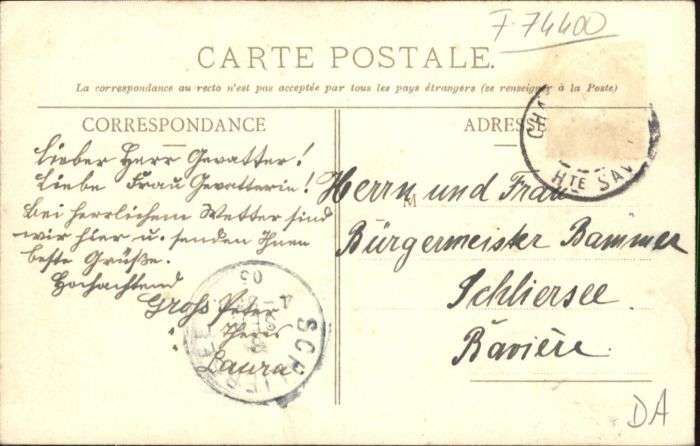 F-74400
CARTE POSTALE.
La correspondance au recto n'est pas acceptée par tous les pays étrangers (se renseigner à la Poste)
CORRESPONDANCE
Lieber Herr Gevatter!
Liebe Frau Gevatterin!
Bei herrlichem Wetter sind
wir hier u. senden Ihnen
beste Grüße.
Hochachtend
Groß Peter
" Theres
" Laura
ADRESSE
M
Herrn und Frau
Bürgermeister Bammer
Schliersee.
Bavière.
CHA
HTE SAV
SCHLIERSEE
05
DA